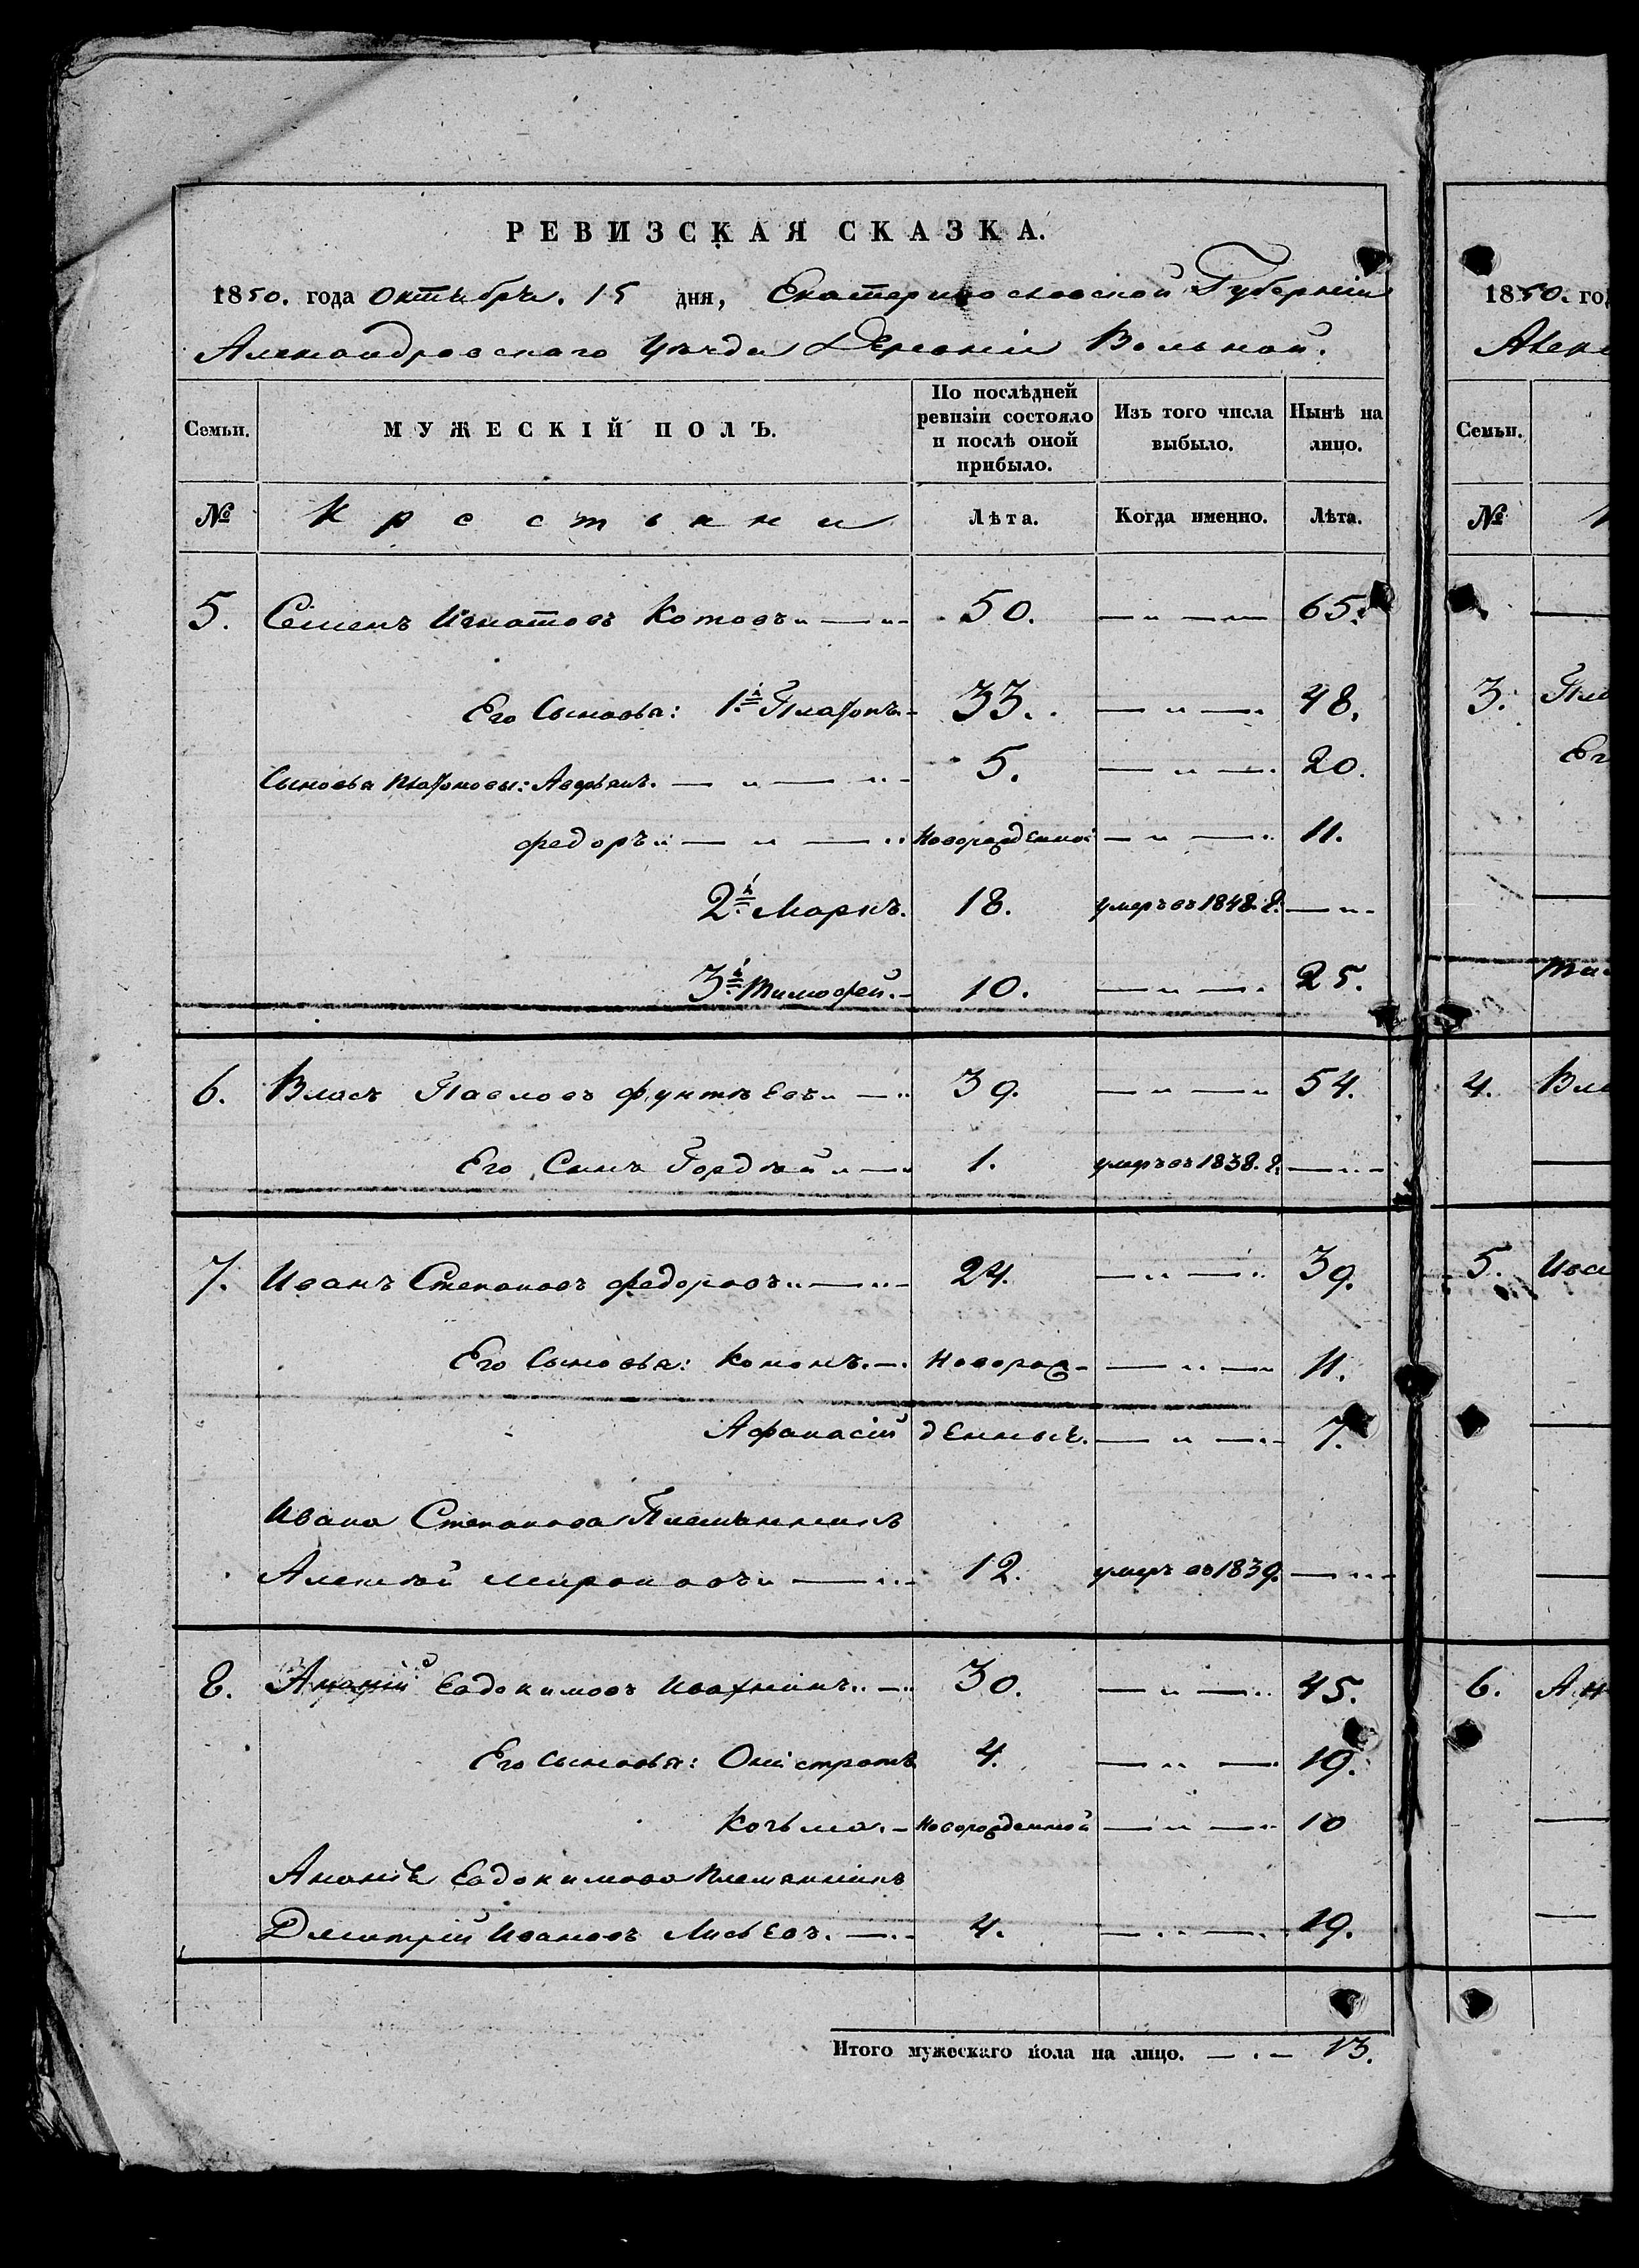 РЕВИЗСКАЯ СКАЗКА.
1850. года октября. 15 дня, Екатеринославской Губерніи
Александровскаго Уѣзда Деревни Вольной.
Семьи. МУЖЕСКІЙ ПОЛЪ. По послѣдней ревизіи состояло и послѣ оной прибыло. Изъ того числа выбыло. Нынѣ на лицо.
№ Крестьяне Лѣта. Когда именно. Лѣта.
5. Семенъ Игнатовъ Котовъ 50. 65.
Его Сыновья: 1й Платонъ 33. 48.
Сыновья Платоновы: Аверьянъ. 5. 20.
Федоръ Новорожденной 11.
2й Маркъ. 18. умеръ въ 1848. г.
3й Тимофей. 10. 25.
6. Власъ Павловъ Фунтѣевъ 39. 54.
Его Сынъ Гордѣй 1. умеръ въ 1838. г.
7. Иванъ Степановъ Федоровъ 24. 39.
Его Сыновья: Кононъ. Новорож- 11.
Афанасій денные. 7.
Ивана Степанова Племянникъ
Алексѣй Мироновъ 12. умеръ въ 1839.
8. Ананій Евдокимовъ Ивахнинъ 30. 45.
Его сыновья: Онистратъ 4. 19.
Козьма. Новорожденной 10
Ананія Евдокимова Племянникъ
Дмитрій Ивановъ Лисьевъ. 4. 19.
Итого мужескаго пола на лицо. 13.
1850. го
Алек
Семьи.
№
3. Пла
Ег
Ти
4. Вла
5. Ива
6. Ан